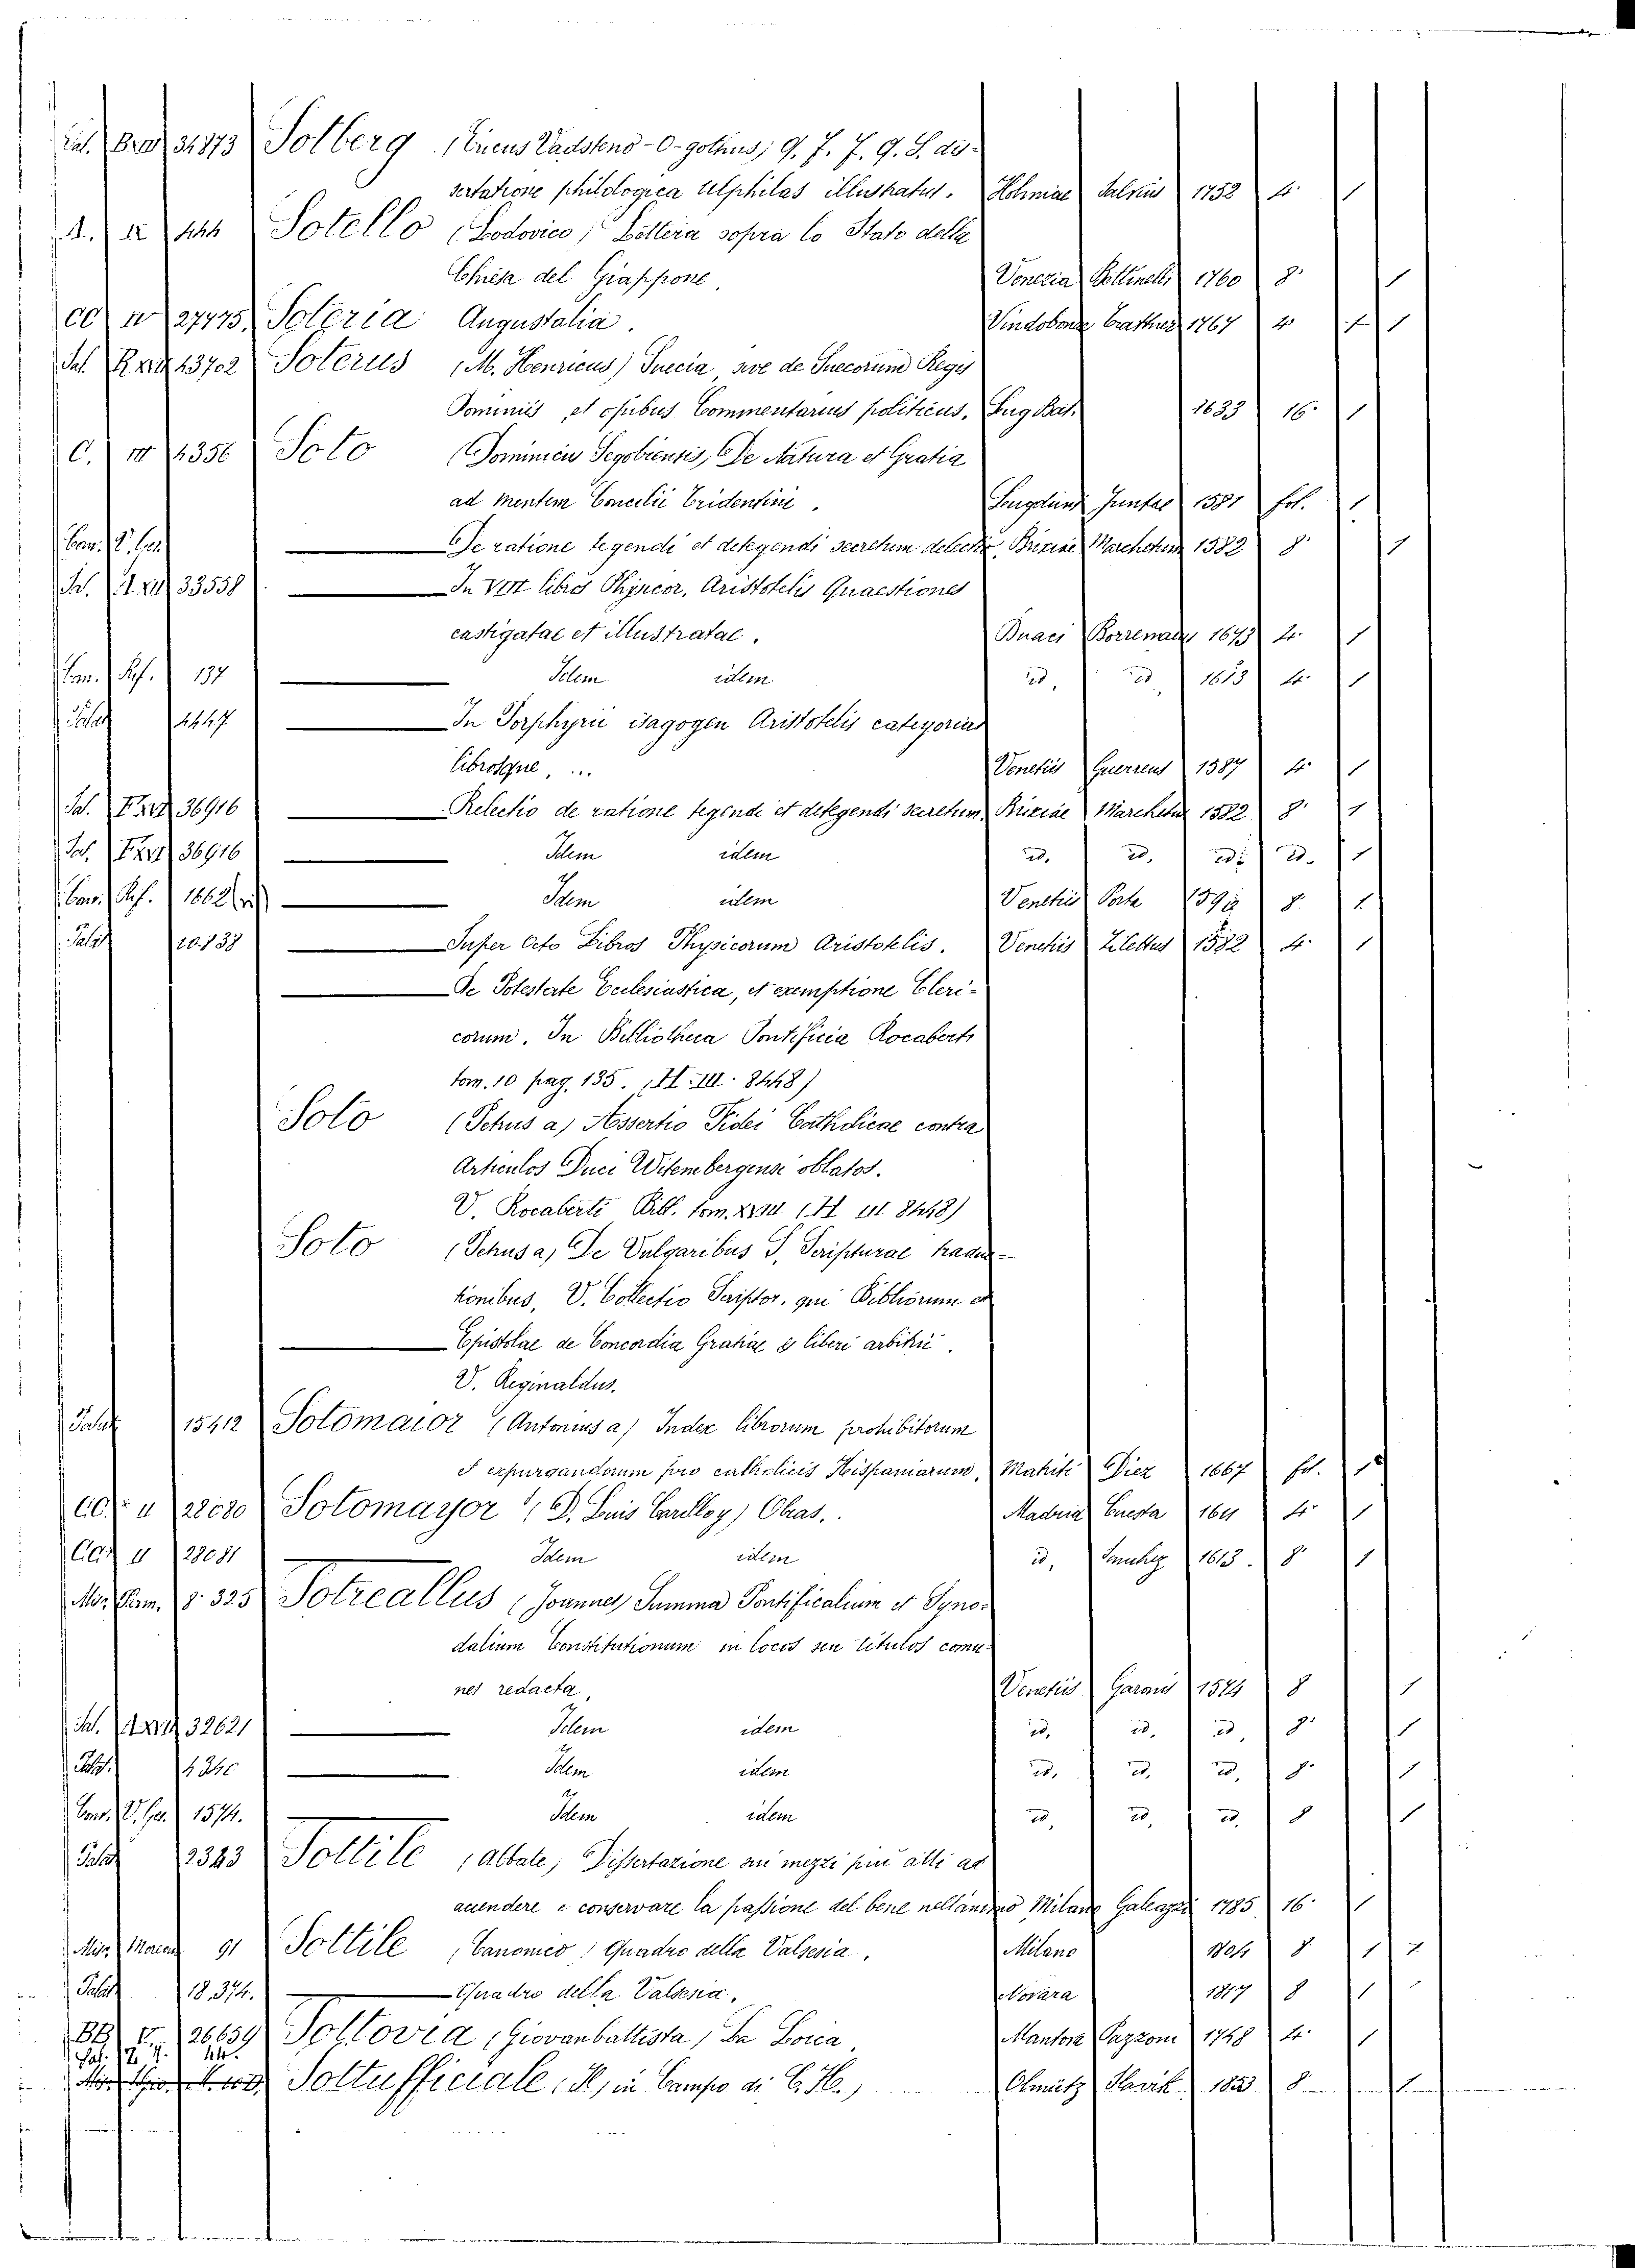 Sal. Brev 31873 Solberg (Ericus Vadsteno-O-gothus) G. J. J. G. S. dis-
sertatione philologica Ulphilas illustratus. Holmiae Salvius 1752 4. 1
A. IX 444 Sotello (Lodovico) Lettera sopra lo Stato della
Chiesa del Giappone. Venezia Bettinelli 1760 8. 1
CC IV 27775. Soteria Augustalia. Vindobonae Trattner 1767 4. 1 1
Sal 13702 Soterus (M. Henricus) Suecia, sive de Suecorum Regis
Dominiis et opibus Commentarius politicus. Lug Bat. 1633 16. 1
C. VI 4356 Soto (Dominicus Segobiensis) De Natura et Gratia
ad mentem Concilii Tridentini. Lugduni Juntae 1581 fol. 1
Con. V. Ger. De ratione tegendi et detegendi secretum relectio. Brixiae Marchetus 1582 8. 1
Sal. 33558 In VIII libros Physicor. Aristotelis Quaestiones
castigatae et illustratae. Duaci Borremans 1613 4. 1
Con. Ref. 137 Idem idem id. id. 1613 4. 1
Palat 4447 In Porphyrii isagogen Aristotelis categorias
librosque, ... Venetiis Guerreus 1587 4. 1
Sal. 36916 Relectio de ratione tegendi et detegendi secretum. Brixiae Marchetus 1582 8. 1
Sal. 36916 Idem idem id. id. id. id. 1
Con. Ref. 1662 Idem idem Venetiis Porta 8. 1
Palat 10.838 Super Octo Libros Physicorum Aristotelis. Venetiis Zilettus 1582 4. 1
De Potestate Ecclesiastica, et exemptione Cleri-
corum. In Bibliotheca Pontificia Rocaberti
tom. 10 pag. 135. (H. III. 8448)
Soto (Petrus a) Assertio Fidei Catholicae contra
Articulos Duci Witembergense oblatos.
V. Rocaberti Bibl. tom. XVIII (H III 8448)
Soto (Petrus a) De Vulgaribus S. Scripturae traduc-
tionibus, V. Collectio Scriptor. qui Bibliorum et
Epistolae de Concordia Gratiae & liberi arbitrii.
V. Reginaldus.
Palat 15412 Sotomaior (Antonius a) Index librorum prohibitorum
et expurgandorum pro catholicis Hispaniarum, Matriti Diez 1667 fol. 1
CC. II 28080 Sotomayor (D. Luis Carilloy) Obras. Madrid Cuesta 1611 4. 1
CC. II 28081 Idem idem id. Sanchez 1613. 8. 1
Mor. Com. 8. 325 Sotreallus (Joannes) Summa Pontificalium et Syno-
dalium Constitutionum in locos seu titulos comu-
nes redacta, Venetiis 1574 8 1
Sal. 32621 Idem idem id. id. id. 8. 1
Palat. 4240 Idem idem id. id. id. 8. 1
Con. V. Ger. 1574. Idem idem id, id, id, 8 1
Palat 2343 Sottile (abbate) Dissertazione sui mezzi più atti ad
accendere e conservare la passione del bene nell'animo Milano Galeazzi 1785 16. 1
91 Sottile (Canonico) Quadro della Valsesia. Milano 8. 1
Palat 18,374. Quadro della Valsesia. Novara 1817 8 1
BB V. 26659 Sottovia (Giovanbattista) La Lorica. Mantova Pazzoni 1748 4. 1
Sottufficiale (Il) in Campo di C. H.) Olmütz Slavik 1853 8. 1